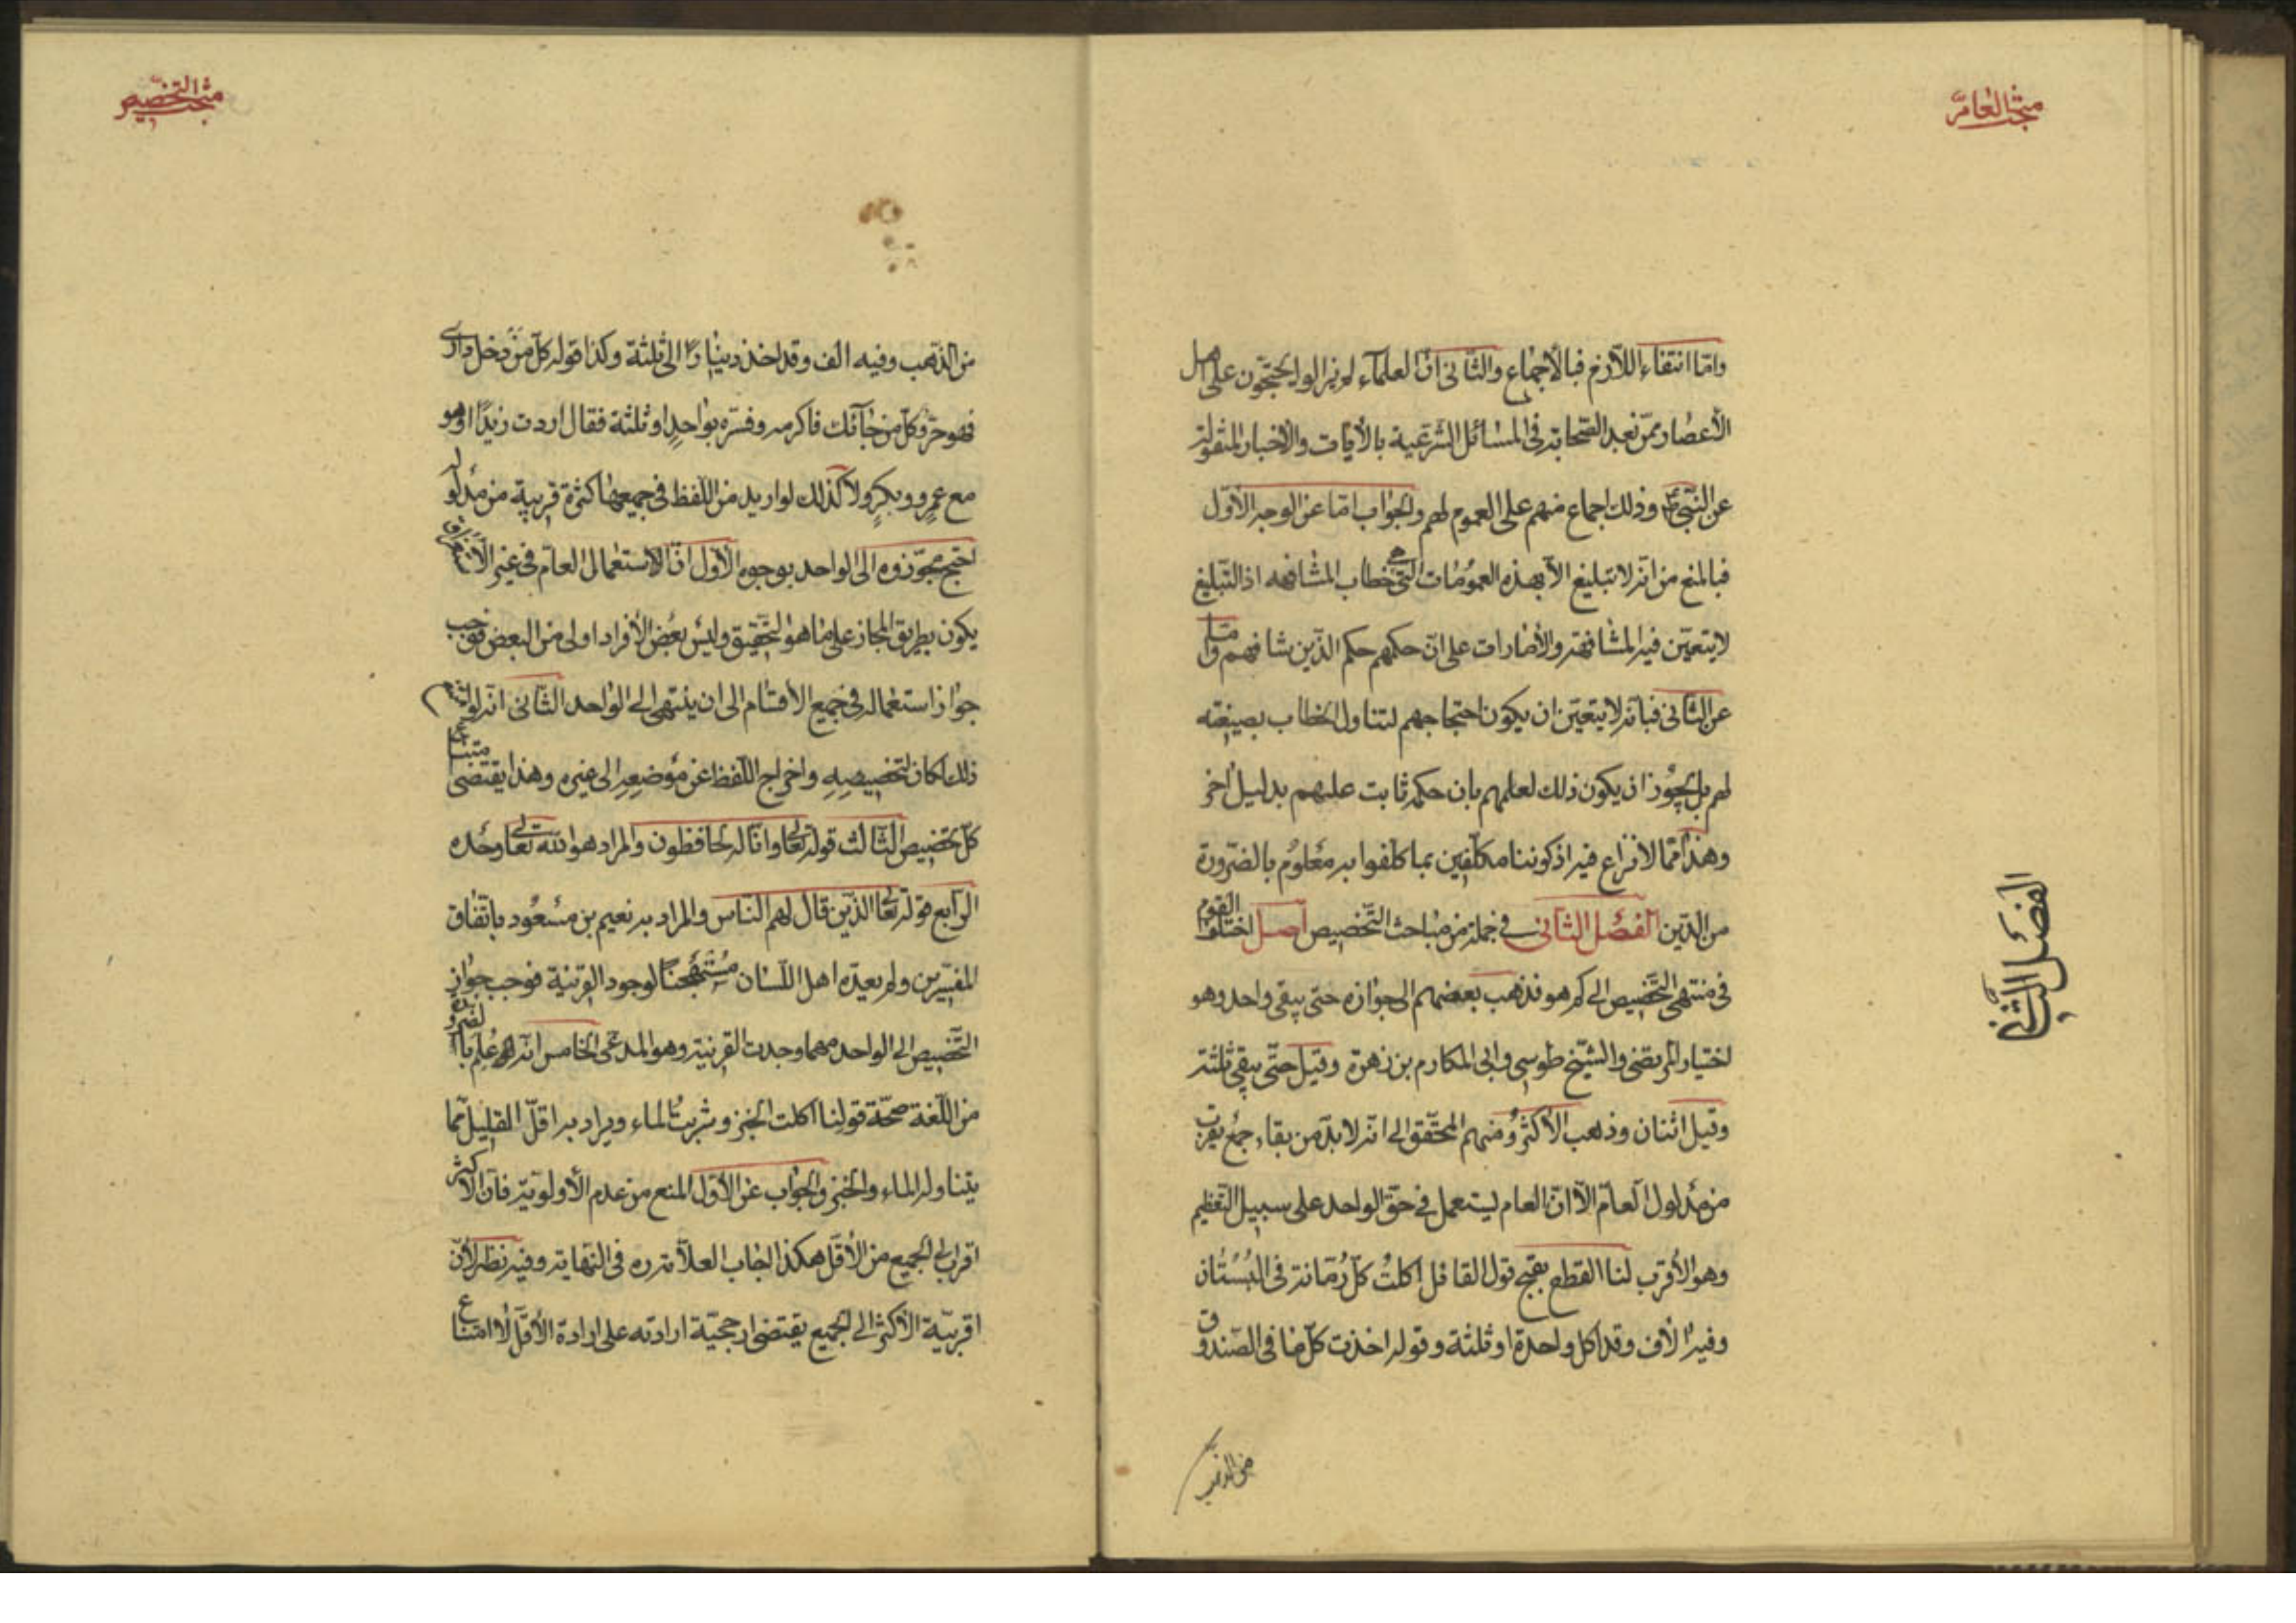 مبحث العامّ
وامّا انتفاء اللّازم فبالأجماع والثّانى انّ العلمآء لم يزالوا يحتجّون على اهل
الأعصار ممّن بعد الصّحابة فى المسائل الشّرعية بالأيات والأخبار المنقولة
عن النّبىّ ص وذلك اجماع منهم على العموم لهم والجواب امّا عن الوجه الأوّل
فبالمنع من انّه لا تبليغ الاّ بهذه العمومات الّتى هى خطاب المشافهه اذ التّبليغ
لا يتعيّن فيه المشافهة والأمارات على انّ حكمهم حكم الّذين شافههم وامّا
عن الثّانى فبانّه لا يتعيّن ان يكون احتجاجهم لتناول الخطاب بصيغته
لهم بل يجوز ان يكون ذلك لعلمهم بان حكمه ثابت عليهم بدليل اخر
وهذا ممّا لا نزاع فيه اذ كوننا مكلّفين بما كلّفوا به معلوم بالضّرورة
من الدّين الفصل الثّانى فى جملة من مباحث التّخصيص اصل اختلف القوم
فى منتهى التّخصيص الى كم هو فذهب بعضهم الى جوازه حتى يبقى واحد وهو
اختيار المرتضى والشّيخ طوسى وابى المكارم بن زهرة وقيل حتّى يبقى ثلثة
وقيل اثنان وذهب الأكثر ومنهم المحقّق الى انّه لا بدّ من بقاء جمع يقرب
من مدلول العامّ الاّ انّ العام ليستعمل فى حقّ الواحد على سبيل التّعظيم
وهو الأقرب لنا القطع بقبح قول القائل اكلت كلّ رمّانة فى البستان
وفيه الأف وقد اكل واحدة او ثلثة وقوله اخذت كلّ ما فى الصّندوق
من الذّهب
الفصل الثّانى
مبحث التّخصيص
من الذّهب وفيه الف وقد اخذ دينارًا الى ثلثة وكذا قوله كلّ من دخل دارى
فهو حرّ وكلّ من جآئك فاكرمه وفسّره بواحدٍ او ثلثة فقال اردت زيدًا او هو
مع عمرو وبكرٍ ولا كذلك لو اريد من اللّفظ فى جميعها كثرة قريبة من مدلوله
احتج مجوّزوه الى الواحد بوجوه الأوّل انّ الاستعمال العامّ فى غير الأستغراق
يكون بطريق المجاز على ما هو التّحقيق وليس بعض الأفراد اولى من البعض فوجب
جواز استعماله فى جميع الأقسام الى ان ينتهى الى الواحد الثّانى انّه لو امتنع
ذلك لكان لتخصيصه واخراج اللّفظ عن موضعه الى غيره وهذا يقتضى امتناع
كلّ تخصيص الثّالث قوله تعالى وانّا له لحافظون والمراد هو اللّه تعالى وحده
الرّابع قوله تعالى الّذين قال لهم النّاس والمراد به نعيم بن مسعود باتّفاق
المفسّرين ولم يعدّه اهل اللّسان مستهجنا لوجود القرينة فوجب جواز
التّخصيص الى الواحد مهما وجدت القرينة وهو المدعى الخامس انّه علم بالضرورة
من اللّغة صحّة قولنا اكلت الخبز وشربت الماء ويراد به اقلّ القليل ممّا
يتناوله الماء والخبز والجواب عن الأوّل المنع من عدم الأولويّة فانّ الأكثر
اقرب الى الجميع من الأقلّ هكذا اجاب العلاّمة ره فى النّهاية وفيه نظر لأنّ
اقربيّة الأكثر الى الجميع يقتضى ارجحيّة ارادته على ارادة الأقلّ لا امتناع